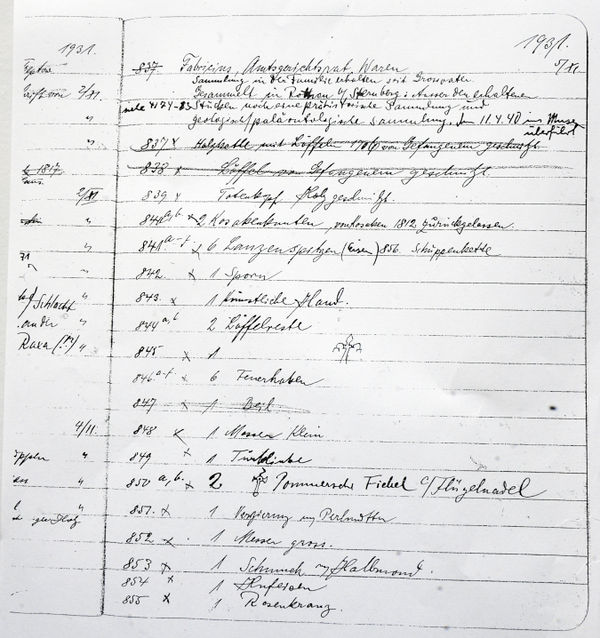 1931.
2/XI.
"
1817
2/XI
"
"
71
Schlacht "
an der "
Raxa (??) "
4/11.
"
"
1931.
5/XI.
837. Fabricius, Amtsgerichtsrat, Waren
Sammlung in der Familie erhalten seit Grossvater
Gesammelt in b/ Sternberg: Ausser den erhaltenen
siehe 4174-83 Stücken noch eine prähistorische Sammlung und
geologisch/paläontologische Sammlung, den 11.4.40 ins Museum
überführt
837 x Holzkette mit Löffeln von Gefangenem geschnitzt
838 x Löffel von Gefangenem geschnitzt
839 x Totenkopf Holz geschnitzt.
840 a,b x 2 Kosakenkanten, von Kosaken 1812 zurückgelassen.
841 a-f x 6 Lanzenspitzen (Eisen) 856. Schuppenkette
842 x 1 Sporn
843. x 1 künstliche Hand.
844 a,b 2 Löffelreste
845 x 1
846 a-f x 6 Feuerhaken
847 x 1 Beil
848 x 1 Messer klein
849 x 1
850 a,b. x 2 Pommersche Fibel c/ Flügelnadel
851. x 1 Verzierung m/ Perlmutter
852 x 1 Messer gross.
853 x 1 Schmuck m/ Halbmond.
854 x 1 Hufeisen
855 x 1 Rosenkranz.